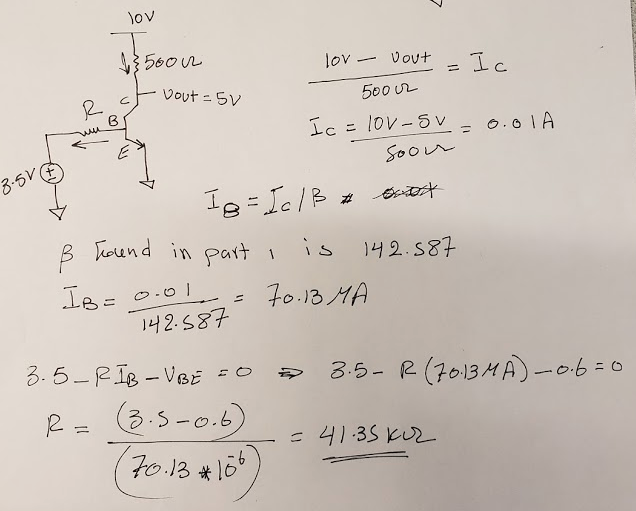 10V
500Ω
C
Vout = 5V
R
B
E
3.5V
10V - Vout / 500Ω = Ic
Ic = 10V - 5V / 500Ω = 0.01A
IB = Ic/β
β Found in part 1 is 142.587
IB = 0.01 / 142.587 = 70.13 MA
3.5 - RIB - VBE = 0 ⇒ 3.5 - R(70.13MA) - 0.6 = 0
R = (3.5 - 0.6) / (70.13 * 10^-6) = 41.35 kΩ